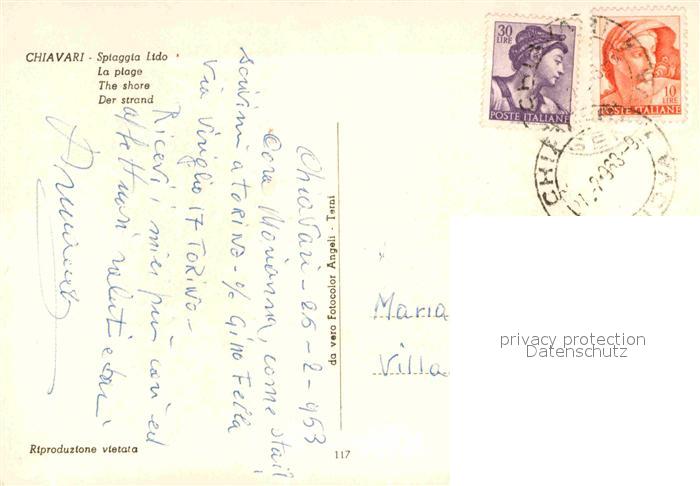 CHIAVARI - Spiaggia Lido
La plage
The shore
Der strand
30
LIRE
POSTE ITALIANE
10
LIRE
POSTE ITALIANE
Chiavari - 25 - 2 - 963
Cara Marianna, come stai,
scrivimi a TORINO - c/o Gino Fella
Via Virgilio 17 TORINO -
Ricevi i miei più cari ed
affettuosi saluti e baci
da vero Fotocolor Angeli - Terni
Maria
Villa
privacy protection
Datenschutz
Riproduzione vietata
117